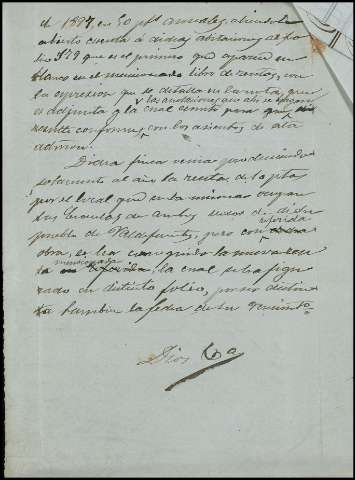 el 1887, en 50 pts anuales, abriendole
abierto cuenta á dichas abitaciones al fo-
lio 349 que es el primero que aparece en
blanco en el mencionado libro de rentas, con
la expresion que se detalla en la nota, que
es adjunta y la cual
las anotaciones que ahi se
resulte conforme, con los asientos de ata
admon.
Dicha finca venia produciendo
solamente al año la renta de
por el local que en la misma ocupan
las Escuelas de ambos sexos de dicho
pueblo de Valdefuentes, pero con
referida
obra, se ha conseguido la nueva ren-
mencionada
ta, la cual se ha figu-
rado en distinto folio, por ser distin-
ta tambien la fecha de su vencimto
Dios